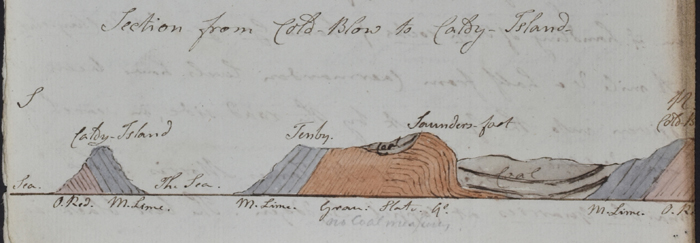 Section from Cold-Blow to Caldy-Island
S
Caldy-Island
Tenby.
Saunders-foot
Coal
Coal
Sea.
The Sea.
O. Red. M. Lime.
M. Lime. Grau: Slate. &c.
M. Lime. O. R
or Coal measures,